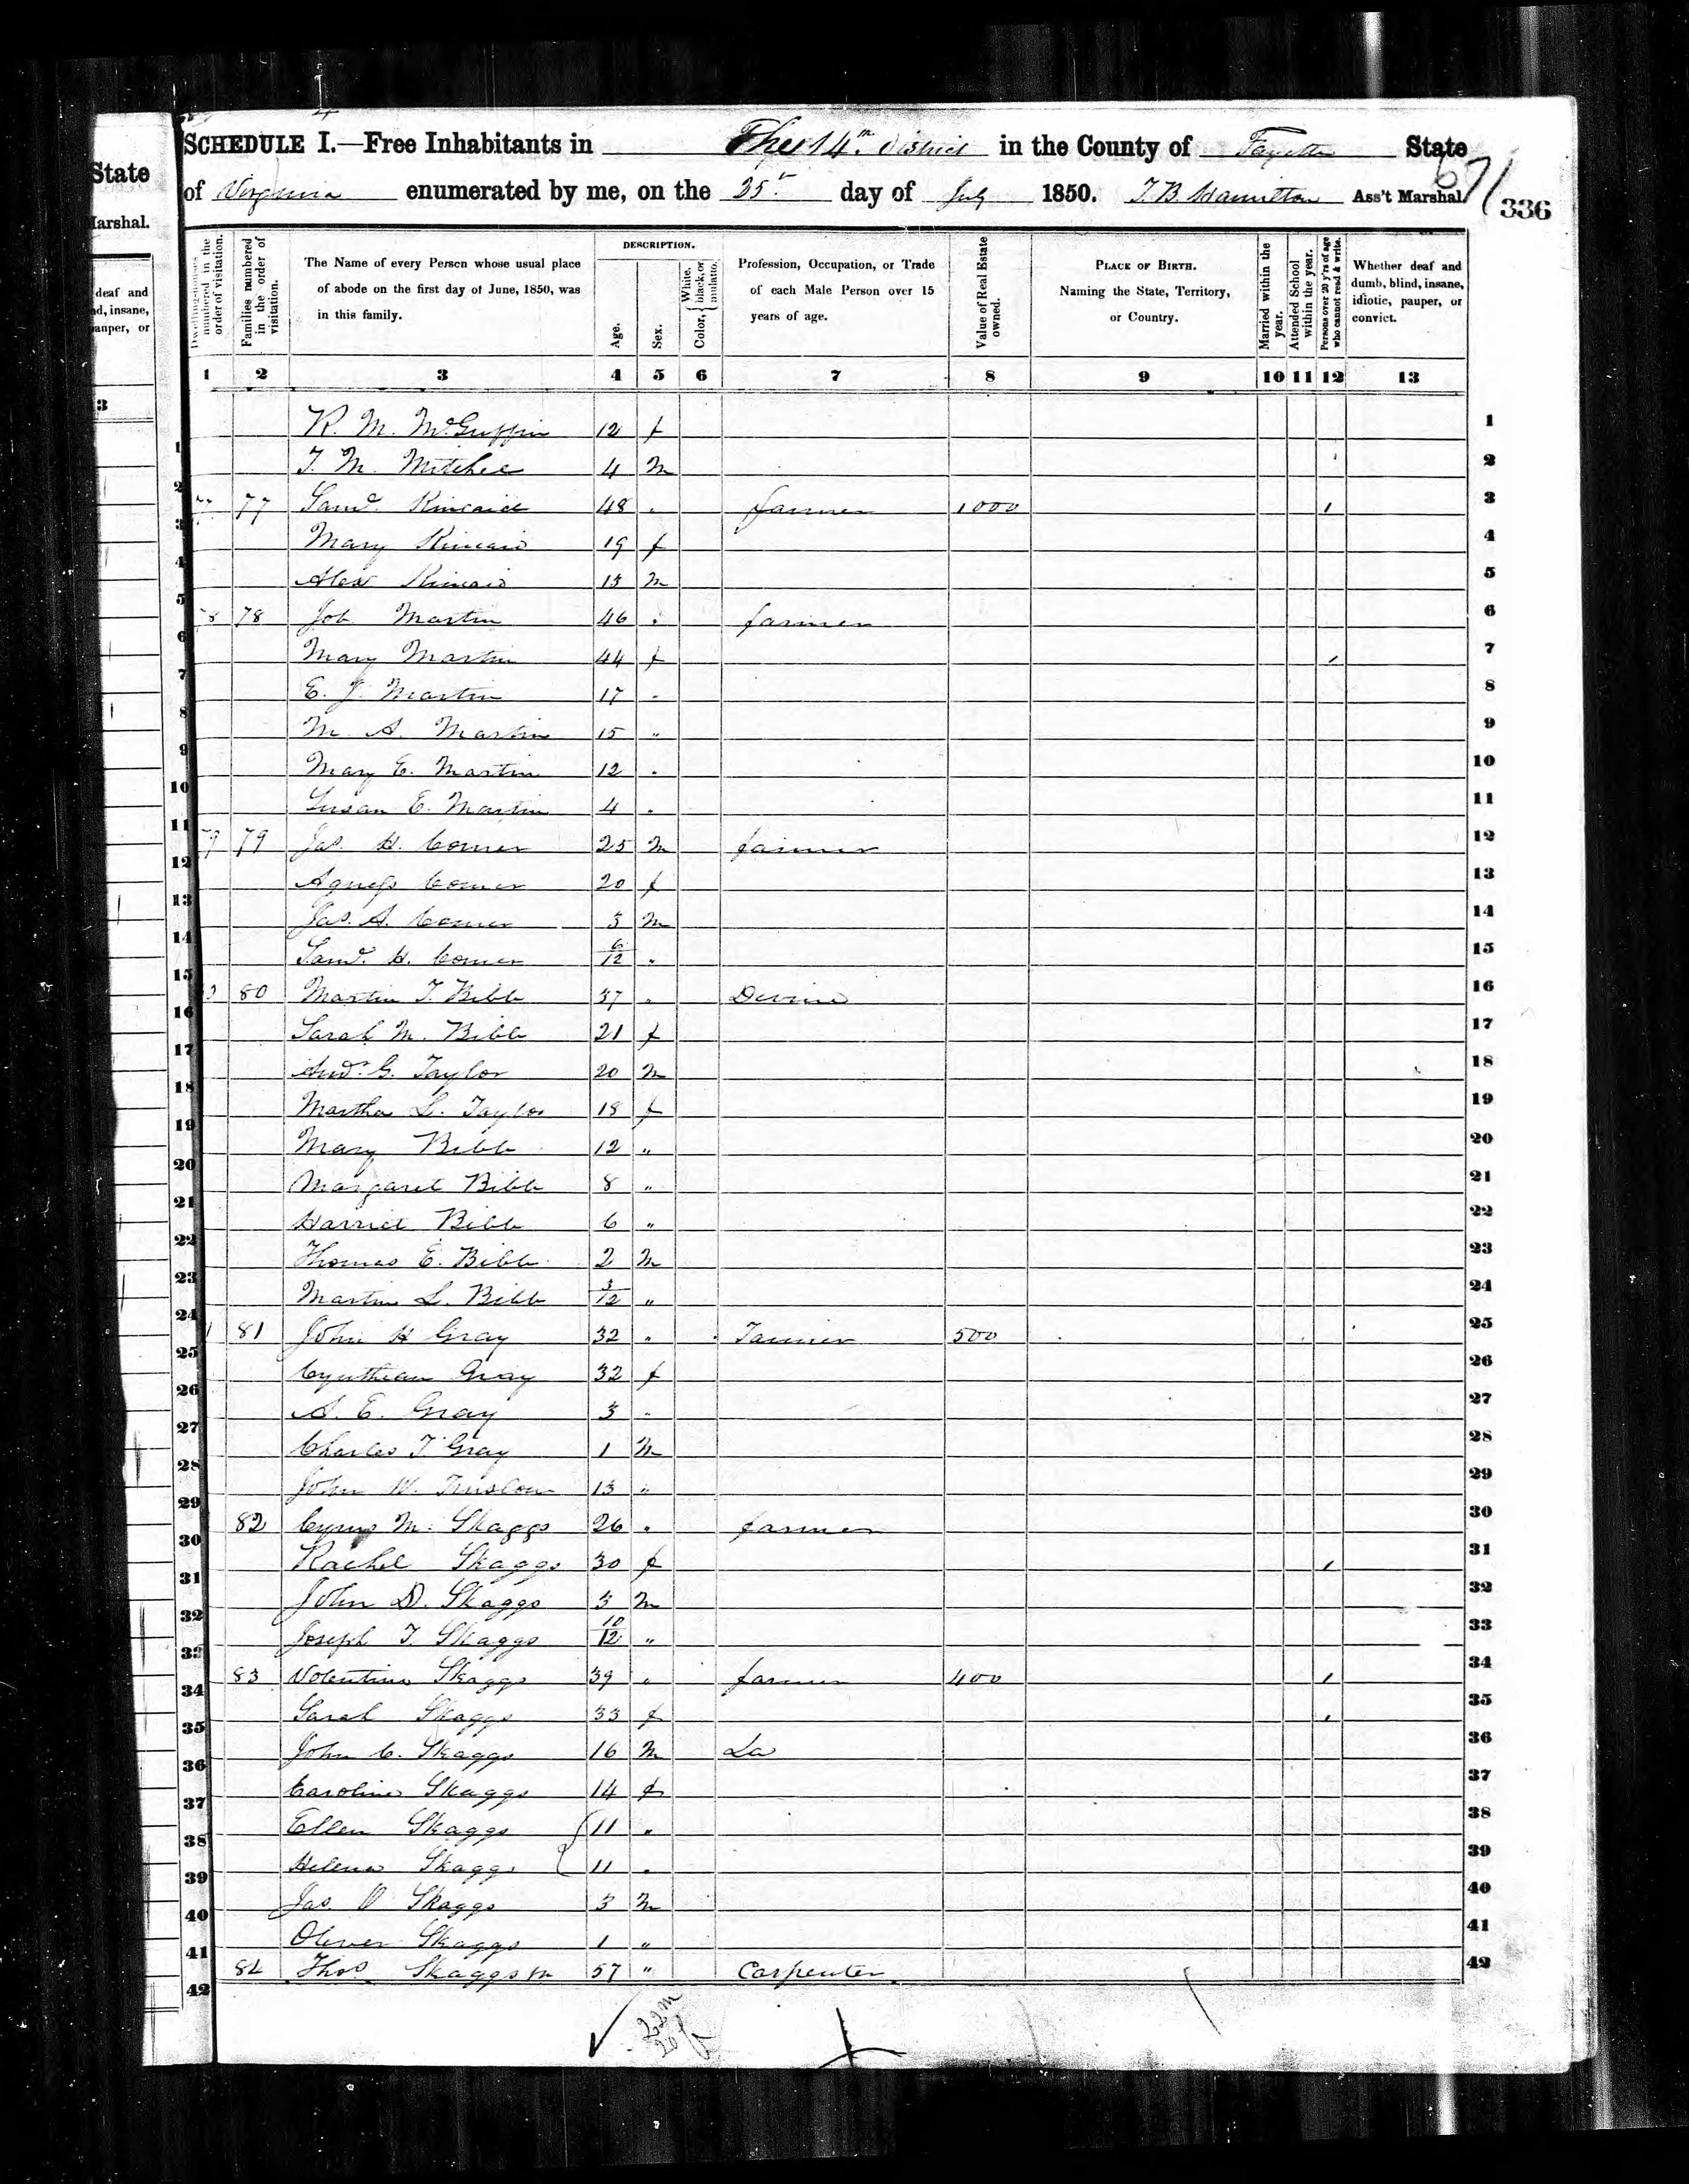 State
Marshal.
deaf and
nd, insane,
pauper, or
3
SCHEDULE I.—Free Inhabitants in The 14th District in the County of Fayette State
of Virginia enumerated by me, on the 25th day of July 1850. T. B. Hamilton Ass't Marshal.
336
Dwelling-houses numbered in the order of visitation.
Families numbered in the order of visitation.
The Name of every Person whose usual place of abode on the first day of June, 1850, was in this family.
DESCRIPTION.
Age.
Sex.
Color, White, black, or mulatto.
Profession, Occupation, or Trade of each Male Person over 15 years of age.
Value of Real Estate owned.
PLACE OF BIRTH. Naming the State, Territory, or Country.
Married within the year.
Attended School within the year.
Persons over 20 y'rs of age who cannot read & write.
Whether deaf and dumb, blind, insane, idiotic, pauper, or convict.
1 2 3 4 5 6 7 8 9 10 11 12 13
R. M. McGuffin 12 f 1
T. M. 4 M 2
77 Saml. Kincaid 48 " farmer 1000 / 3
Mary Kincaid 19 f 4
Alex Kincaid 13 M 5
78 78 Job Martin 46 " farmer 6
Mary Martin 44 f / 7
E. J. Martin 17 " 8
M. A. Martin 15 " 9
Mary E. Martin 12 " 10
Susan E. Martin 4 " 11
79 79 Jas. H. Comer 25 M farmer 12
Agness Comer 20 f 13
Jas. A. Comer 3 M 14
Saml. H. Comer 6/12 " 15
80 Martin T. Bibb 37 " Devine 16
Sarah M. Bibb 21 f 17
And. G. Taylor 20 M 18
Martha L. Taylor 18 f 19
Mary Bibb 12 " 20
Margaret Bibb 8 " 21
Harriet Bibb 6 " 22
Thomas E. Bibb 2 M 23
Martin L. Bibb 3/12 " 24
81 John H Gray 32 " Tanner 500 25
Cynthean Gray 32 f 26
A. E. Gray 3 " 27
Charles T Gray 1 M 28
John W. Tinslow 13 " 29
82 Cyrus M. Skaggs 26 " farmer 30
Rachel Skaggs 30 f / 31
John D. Skaggs 3 M 32
Joseph T. Skaggs 10/12 " 33
83 Volentine Skaggs 39 " farmer 400 / 34
Sarah Skaggs 33 f / 35
John C. Skaggs 16 M La 36
Caroline Skaggs 14 f 37
Ellen Skaggs 11 " 38
Helena Skaggs 11 " 39
Jas. O Skaggs 3 M 40
Oliver Skaggs 1 " 41
84 Thos Skaggs 57 " Carpenter 42
22 m
20 f